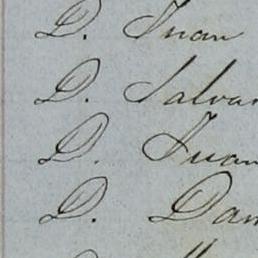 D. Juan
D. Salva
D. Juan
D. Dam
D.